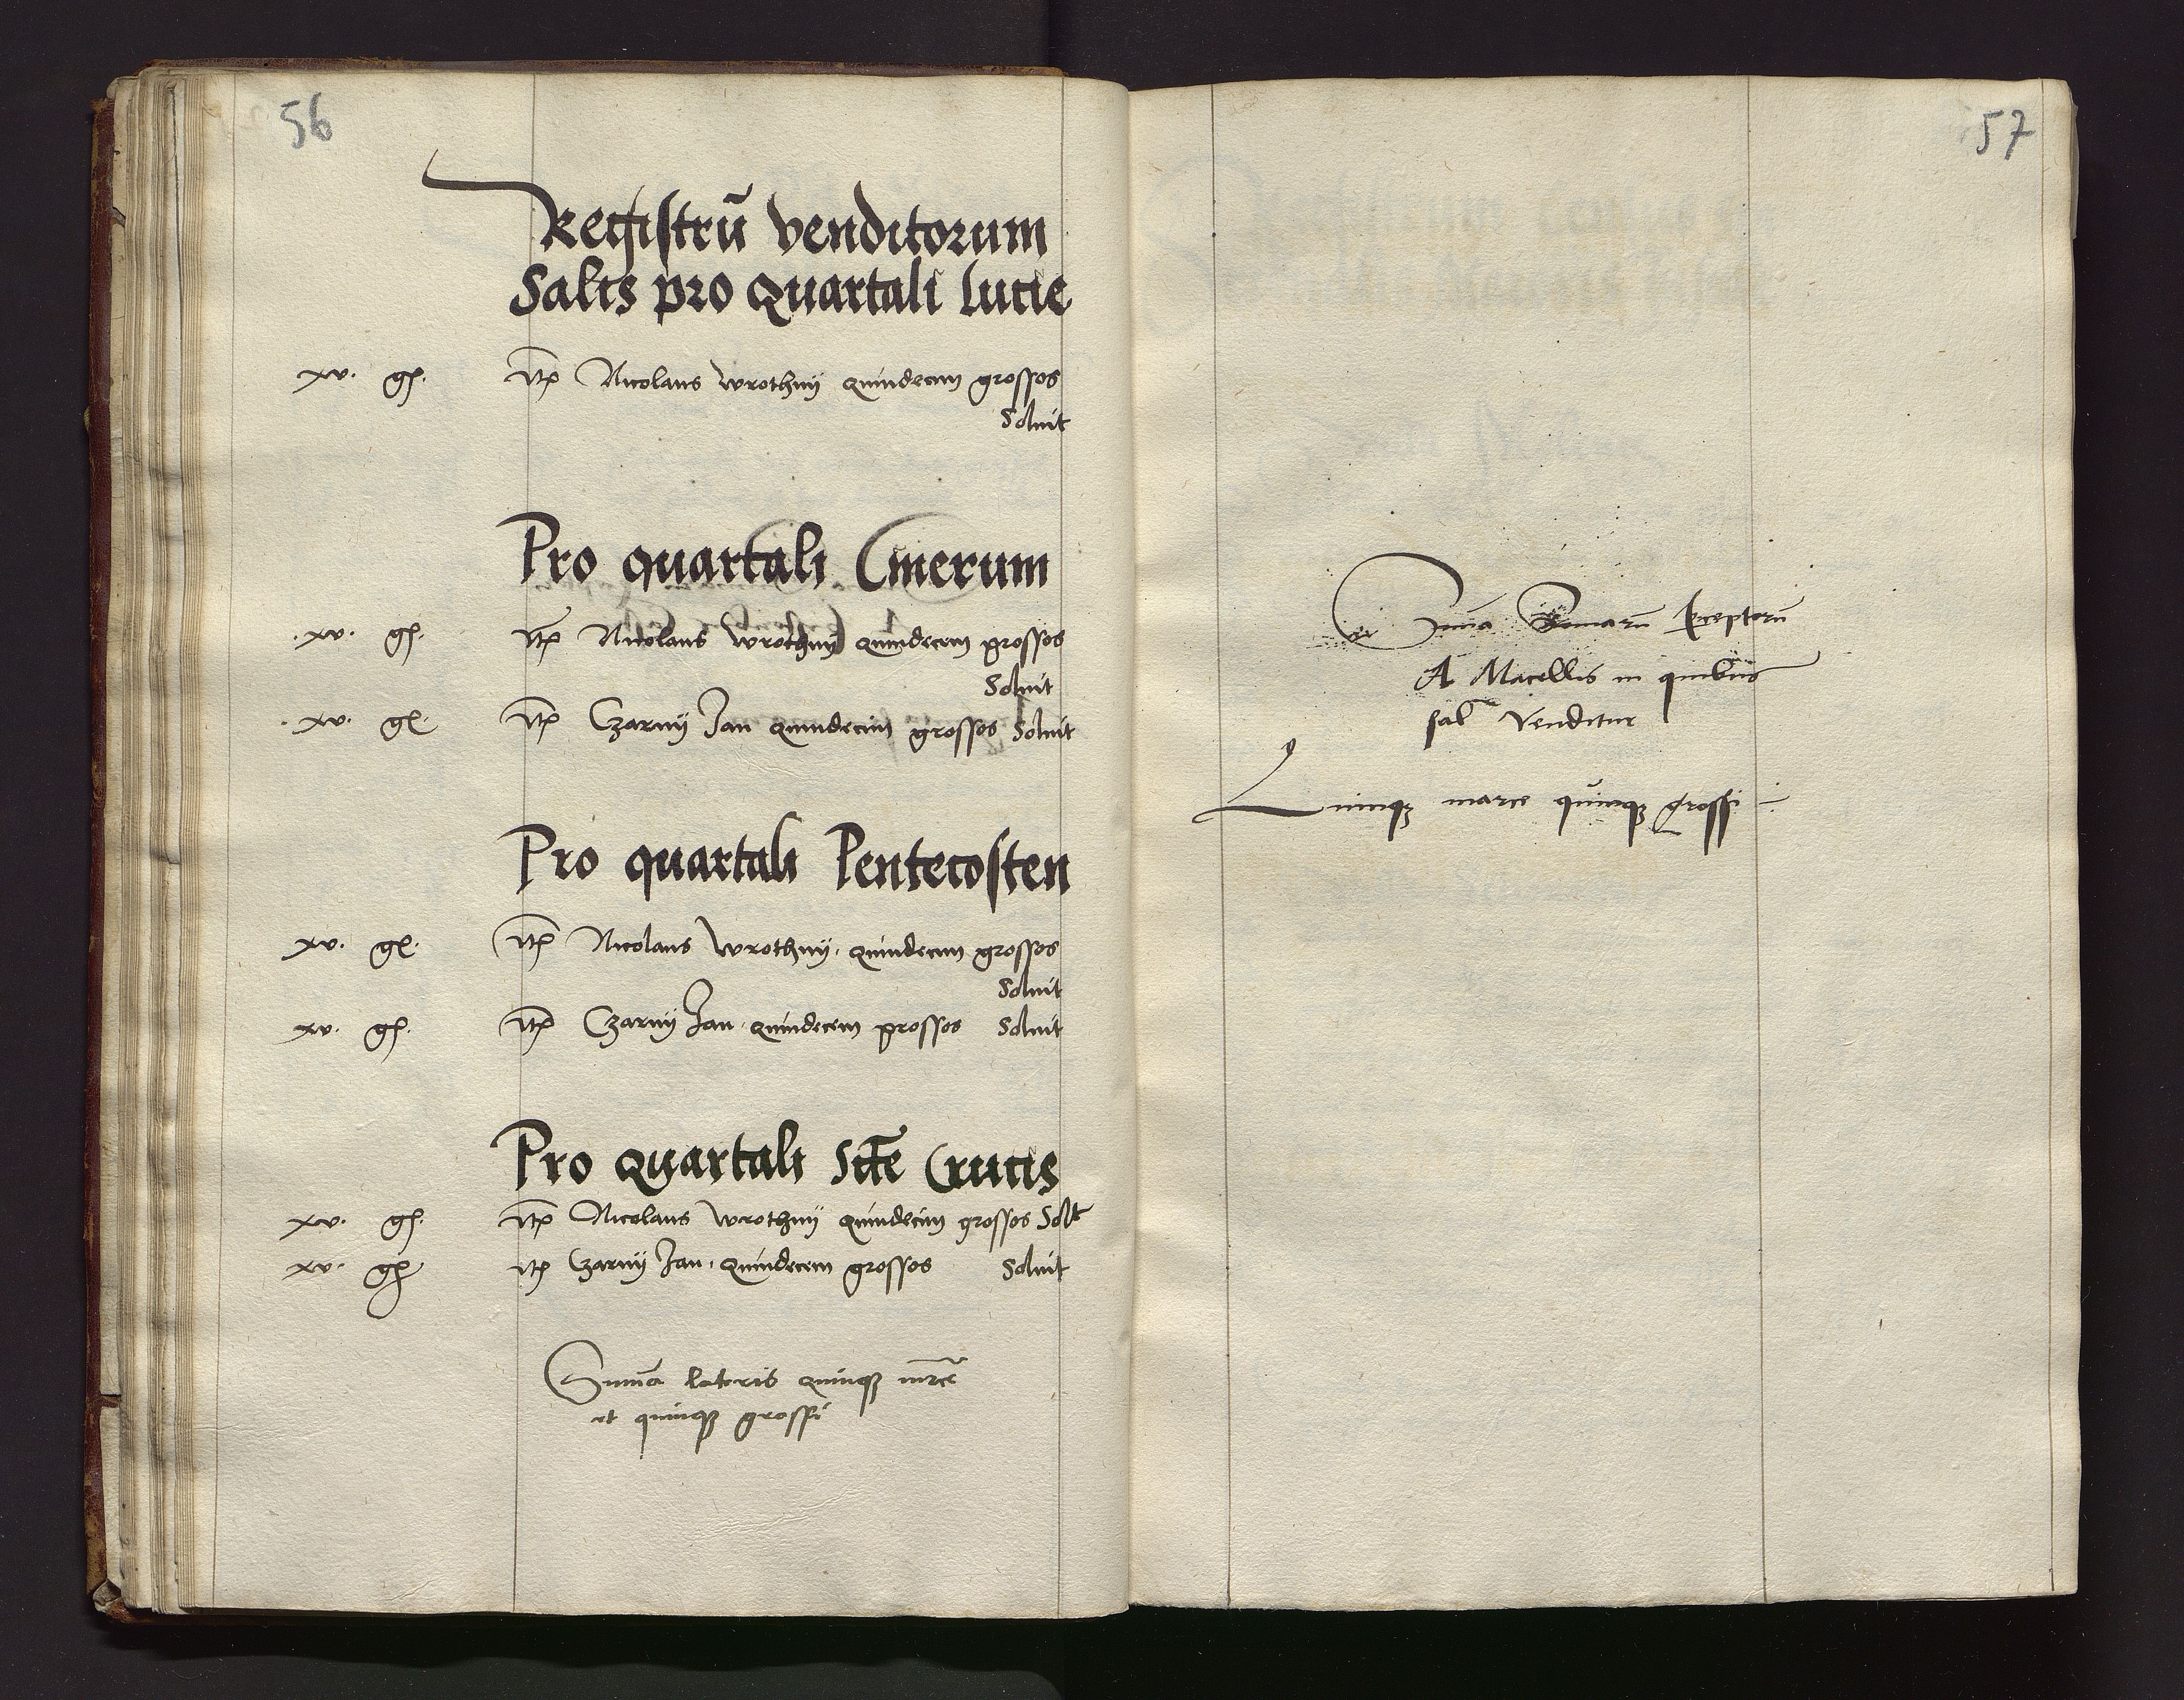 56
Registrū venditorum
Salis pro quartali lucie
xv. gͬ. Itꝫ Nicolaus wrothnÿ quindecim grossos
Soluit
Pro quartali Cinerum
.xv. gͬ. Itꝫ Nicolaus Wrothnÿ quindecem grossos
Soluit
.xv. gͬ. Itꝫ Czarnÿ Jan quindecim grossos Soluit
Pro quartali Pentecosten
xv. gͬ. Itꝫ Nicolaus Wrothnÿ. quindecim grossos
Soluit
xv. gͬ. Itꝫ Czarnÿ Jan. quindecem grossos Soluit
Pro quartali Sctē Crucis
xv. gͬ. Itꝫ Nicolaus Wrothnÿ quindecim grossos Solt
xv. gͬ. Itꝫ Czarnÿ Jan. quindecem grossos Soluit
Sum̄a lateris quinqꝫ mrce
et quinqꝫ grossi
57
Sum̄a ꝑceptorū
A Macellis in quibus
sal Venditur
Quinqꝫ marce quinqꝫ grossi